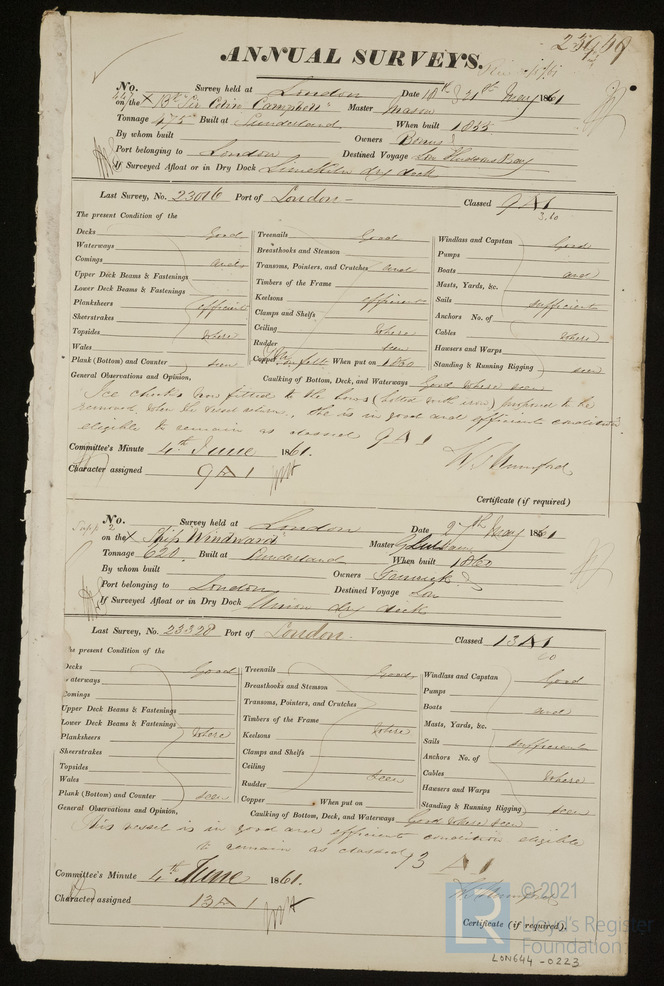 ANNUAL SURVEYS.
No. Survey held at London Date 18th & 21st May 1861
on the Bk Sir Colin Campbell Master Mason
Tonnage 475 Built at Sunderland When built 1855
By whom built Owners
Port belonging to London Destined Voyage Hudsons Bay
If Surveyed Afloat or in Dry Dock Limekiln dry dock
Last Survey, No. 23016 Port of London Classed 9 A1
3.60
The present Condition of the
Decks Good
Waterways
Comings and
Upper Deck Beams & Fastenings
Lower Deck Beams & Fastenings
Planksheers efficient
Sheerstrakes
Topsides where
Wales
Plank (Bottom) and Counter seen
Treenails Good
Breasthooks and Stemson
Transoms, Pointers, and Crutches and
Timbers of the Frame
Keelsons efficient
Clamps and Shelfs
Ceiling where
Rudder seen
Copper When put on 1860
Windlass and Capstan Good
Pumps
Boats and
Masts, Yards, &c.
Sails sufficient
Anchors No. of
Cables where
Hausers and Warps
Standing & Running Rigging seen
General Observations and Opinion,
Caulking of Bottom, Deck, and Waterways Good where seen
Ice chocks now fitted to the bows (bolted with iron) proposed to be
removed when the vessel returns, she is in good and efficient condition
eligible to remain as classed 9 A 1
Committee's Minute 4th June 1861.
Character assigned 9 A 1
W Mumford
Certificate (if required)
No. Survey held at London Date 27th May 1861
on the Ship Windward Master
Tonnage 620 Built at Sunderland When built 1860
By whom built Owners Fenwick
Port belonging to London Destined Voyage
If Surveyed Afloat or in Dry Dock Union dry dock
Last Survey, No. 23328 Port of London. Classed 13 A1
60
The present Condition of the
Decks Good
Waterways
Comings
Upper Deck Beams & Fastenings
Lower Deck Beams & Fastenings
Planksheers where
Sheerstrakes
Topsides
Wales
Plank (Bottom) and Counter seen
Treenails Good
Breasthooks and Stemson
Transoms, Pointers, and Crutches
Timbers of the Frame
Keelsons where
Clamps and Shelfs
Ceiling
Rudder seen
Copper When put on
Windlass and Capstan Good
Pumps
Boats and
Masts, Yards, &c.
Sails sufficient
Anchors No. of
Cables where
Hausers and Warps
Standing & Running Rigging seen
General Observations and Opinion,
Caulking of Bottom, Deck, and Waterways Good where seen
This vessel is in good and efficient condition eligible
to remain as classed 13 A 1
Committee's Minute 4th June 1861.
Character assigned 13 A 1
W Mumford
Certificate (if required).
LR © 2021
Lloyd's Register
Foundation
LON644-0223